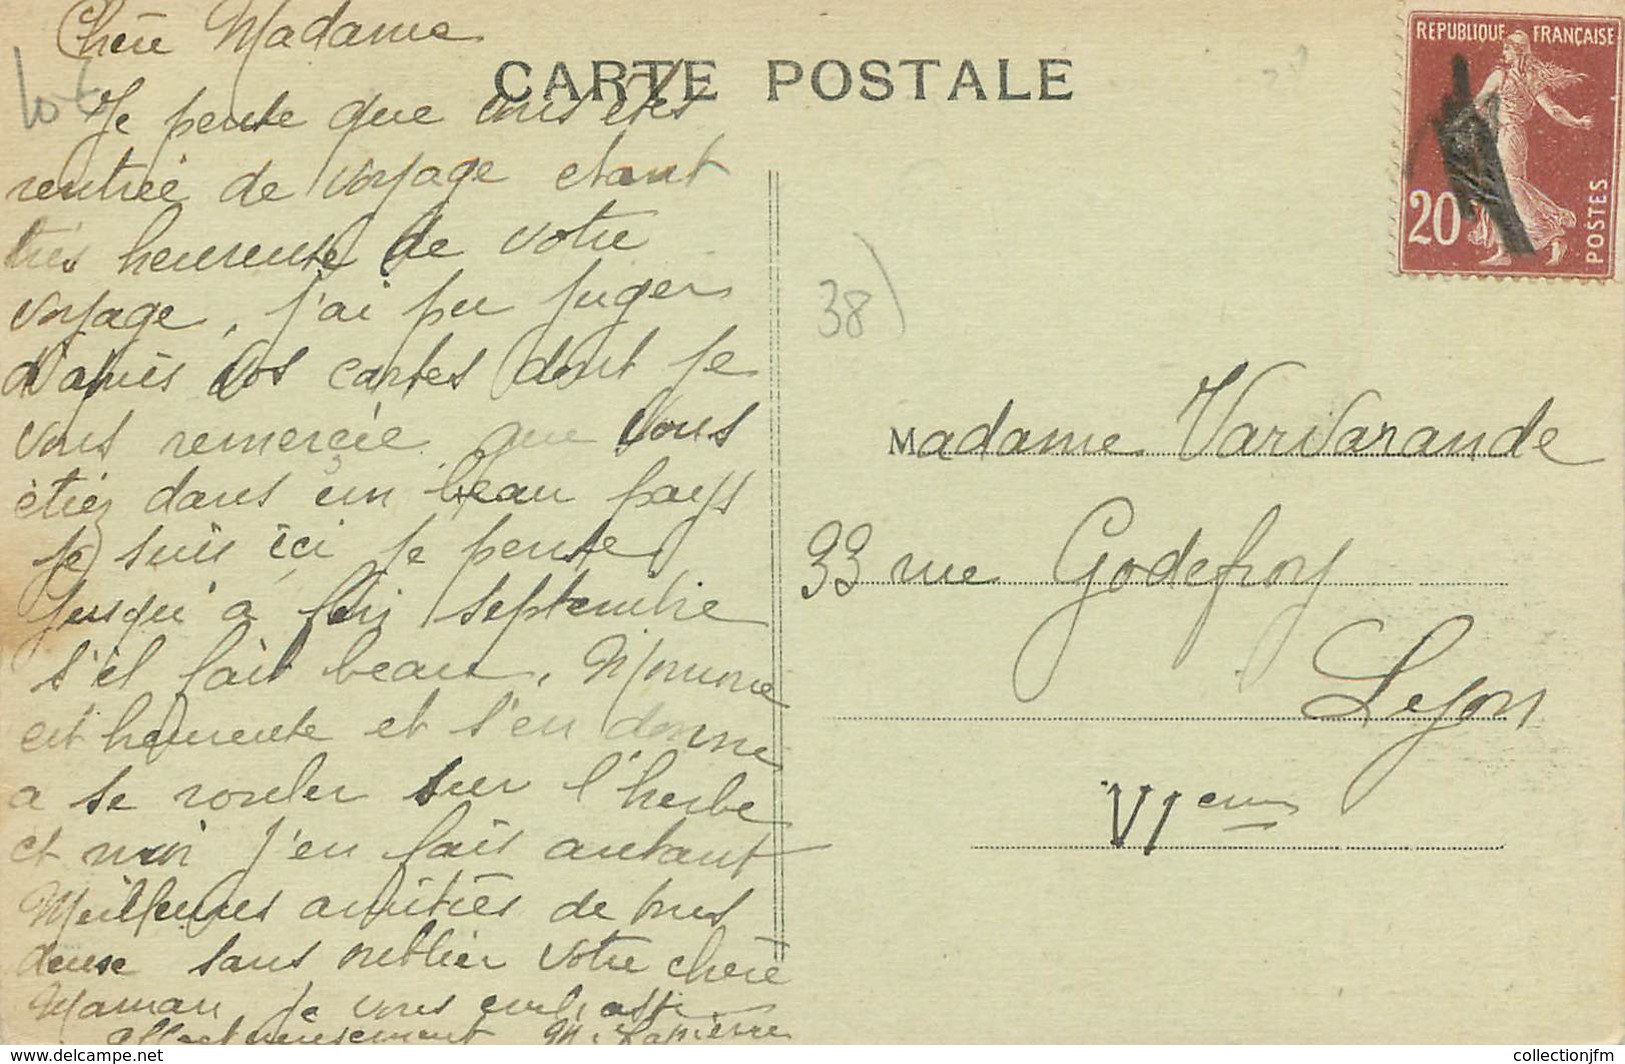 Chère Madame
CARTE POSTALE
lot
Je pense que vous etes
rentrée de voyage etant
très heureuse de votre
voyage, j'ai pu juger
d'après vos cartes dont je
vous remercie que vous
étiez dans un beau pays
je suis ici je pense
jusqu'a fin septembre
s'il fait beau. Monme
est heureuse et s'en donne
a se rouler sur l'herbe
et moi j'en fais autant
Meilleures amitiés de nous
deux sans oublier votre chère
Maman je vous embrasse
affectueusement M. Lapierre
REPUBLIQUE FRANÇAISE
20
POSTES
38)
Madame Varvarande
33 rue Godefroy
Lyon
VIeme
collectionjfm